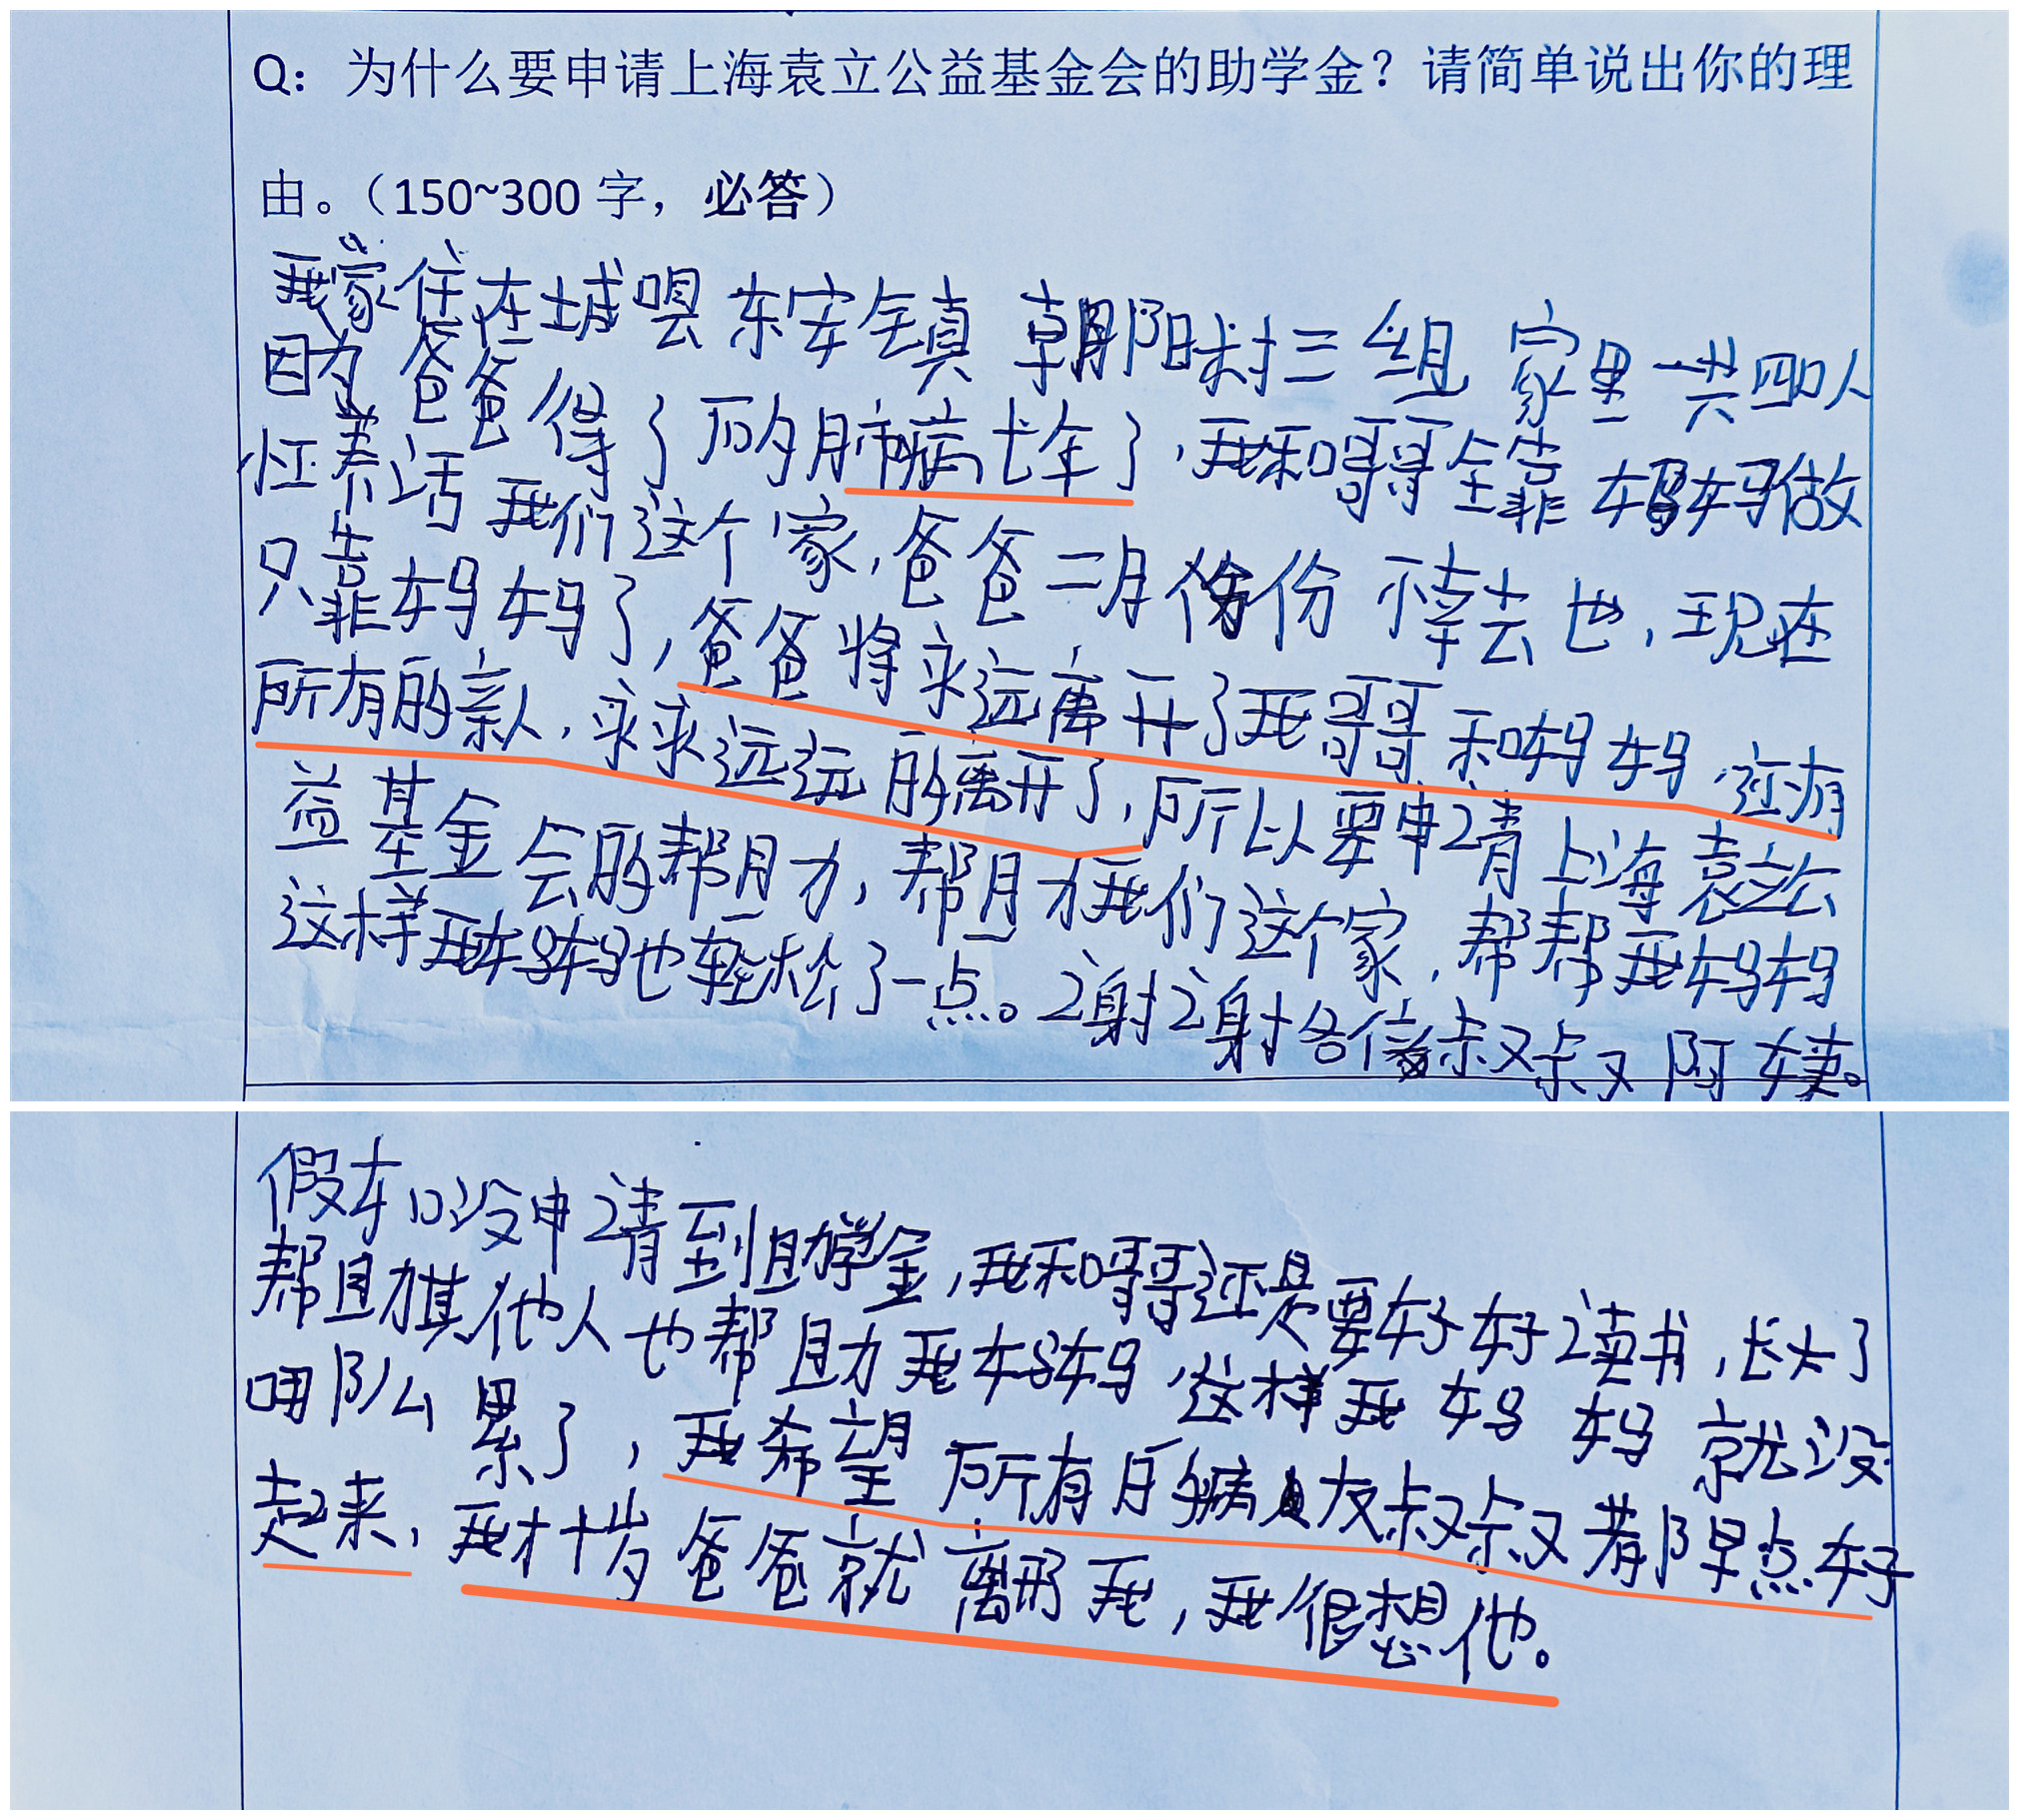 Q：为什么要申请上海袁立公益基金会的助学金？请简单说出你的理
由。（150~300 字，必答）
我家住在城 东安镇 朝阳村三组 家里一共四口人
因为爸爸得了 肺病七年了，我和哥哥全靠妈妈做
养活我们这个家，爸爸二月份 不幸去也，现在
只靠妈妈了，爸爸将永远离开了我哥哥和妈妈，还有
所有的亲人，永永远远的离开了，所以要申请上海袁立公
益基金会的帮助，帮助我们这个家，帮帮我妈妈
这样我妈妈也轻松了一点。谢谢各位叔叔阿姨。
假如没申请到助学金，我和哥哥还是要好好读书，长大了
帮助其他人也帮助我妈妈，这样我妈妈就没
那么累了，我希望所有 病友叔叔都早点好
起来，我才十岁爸爸就离开我，我很想他。